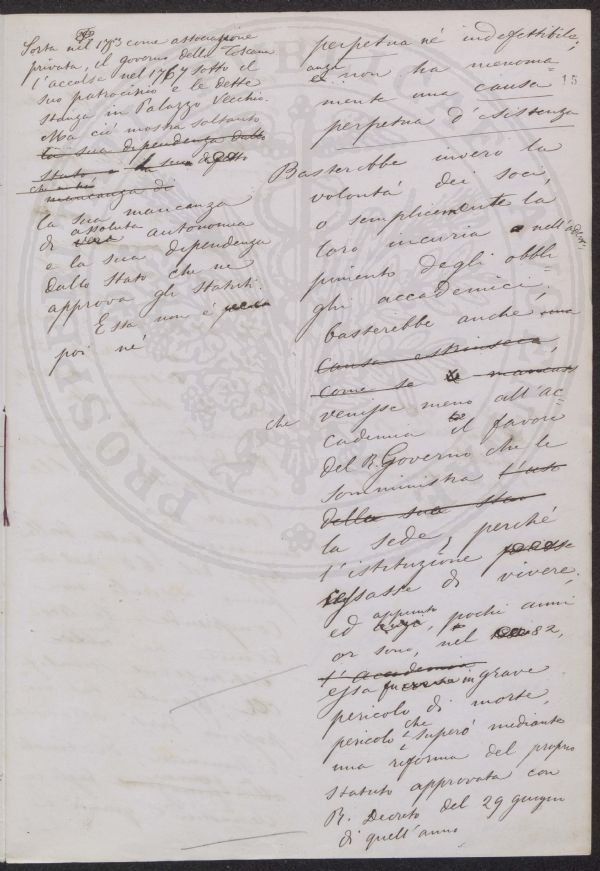 Sorta nel 1753 come associazione
privata, il governo della Toscana
l'accolse nel 1767 sotto il
suo patrocinio e le dette
stanza in Palazzo Vecchio.
Ma ciò mostra soltanto
la sua dependenza dallo
stato, e la sua
mancanza di
la sua mancanza
di assoluta autonomia
e la sua dependenza
dallo Stato che ne
approva gli statuti.
Essa non è
poi nè
15
perpetua nè indefettibile;
anzi non ha menoma
mente una causa
perpetua d'esistenza
Basterebbe invero la
volontà dei soci,
o semplicemente la
loro incuria nell'adem
pimento degli obbli
ghi accademici.
basterebbe anche una
causa estrinseca,
come se mancasse
che venisse meno all'Ac
cademia il favore
del R. Governo che le
somministra l'uso
della sua
la sede, perchè
l'istituzione
cessasse di vivere.
ed appunto, pochi anni
or sono, nel 82,
l'accademia
essa fu in grave
pericolo di morte,
pericolo che superò mediante
una riforma del proprio
statuto approvata con
R. Decreto del 29 giugno
di quell'anno
PROSPERITATI